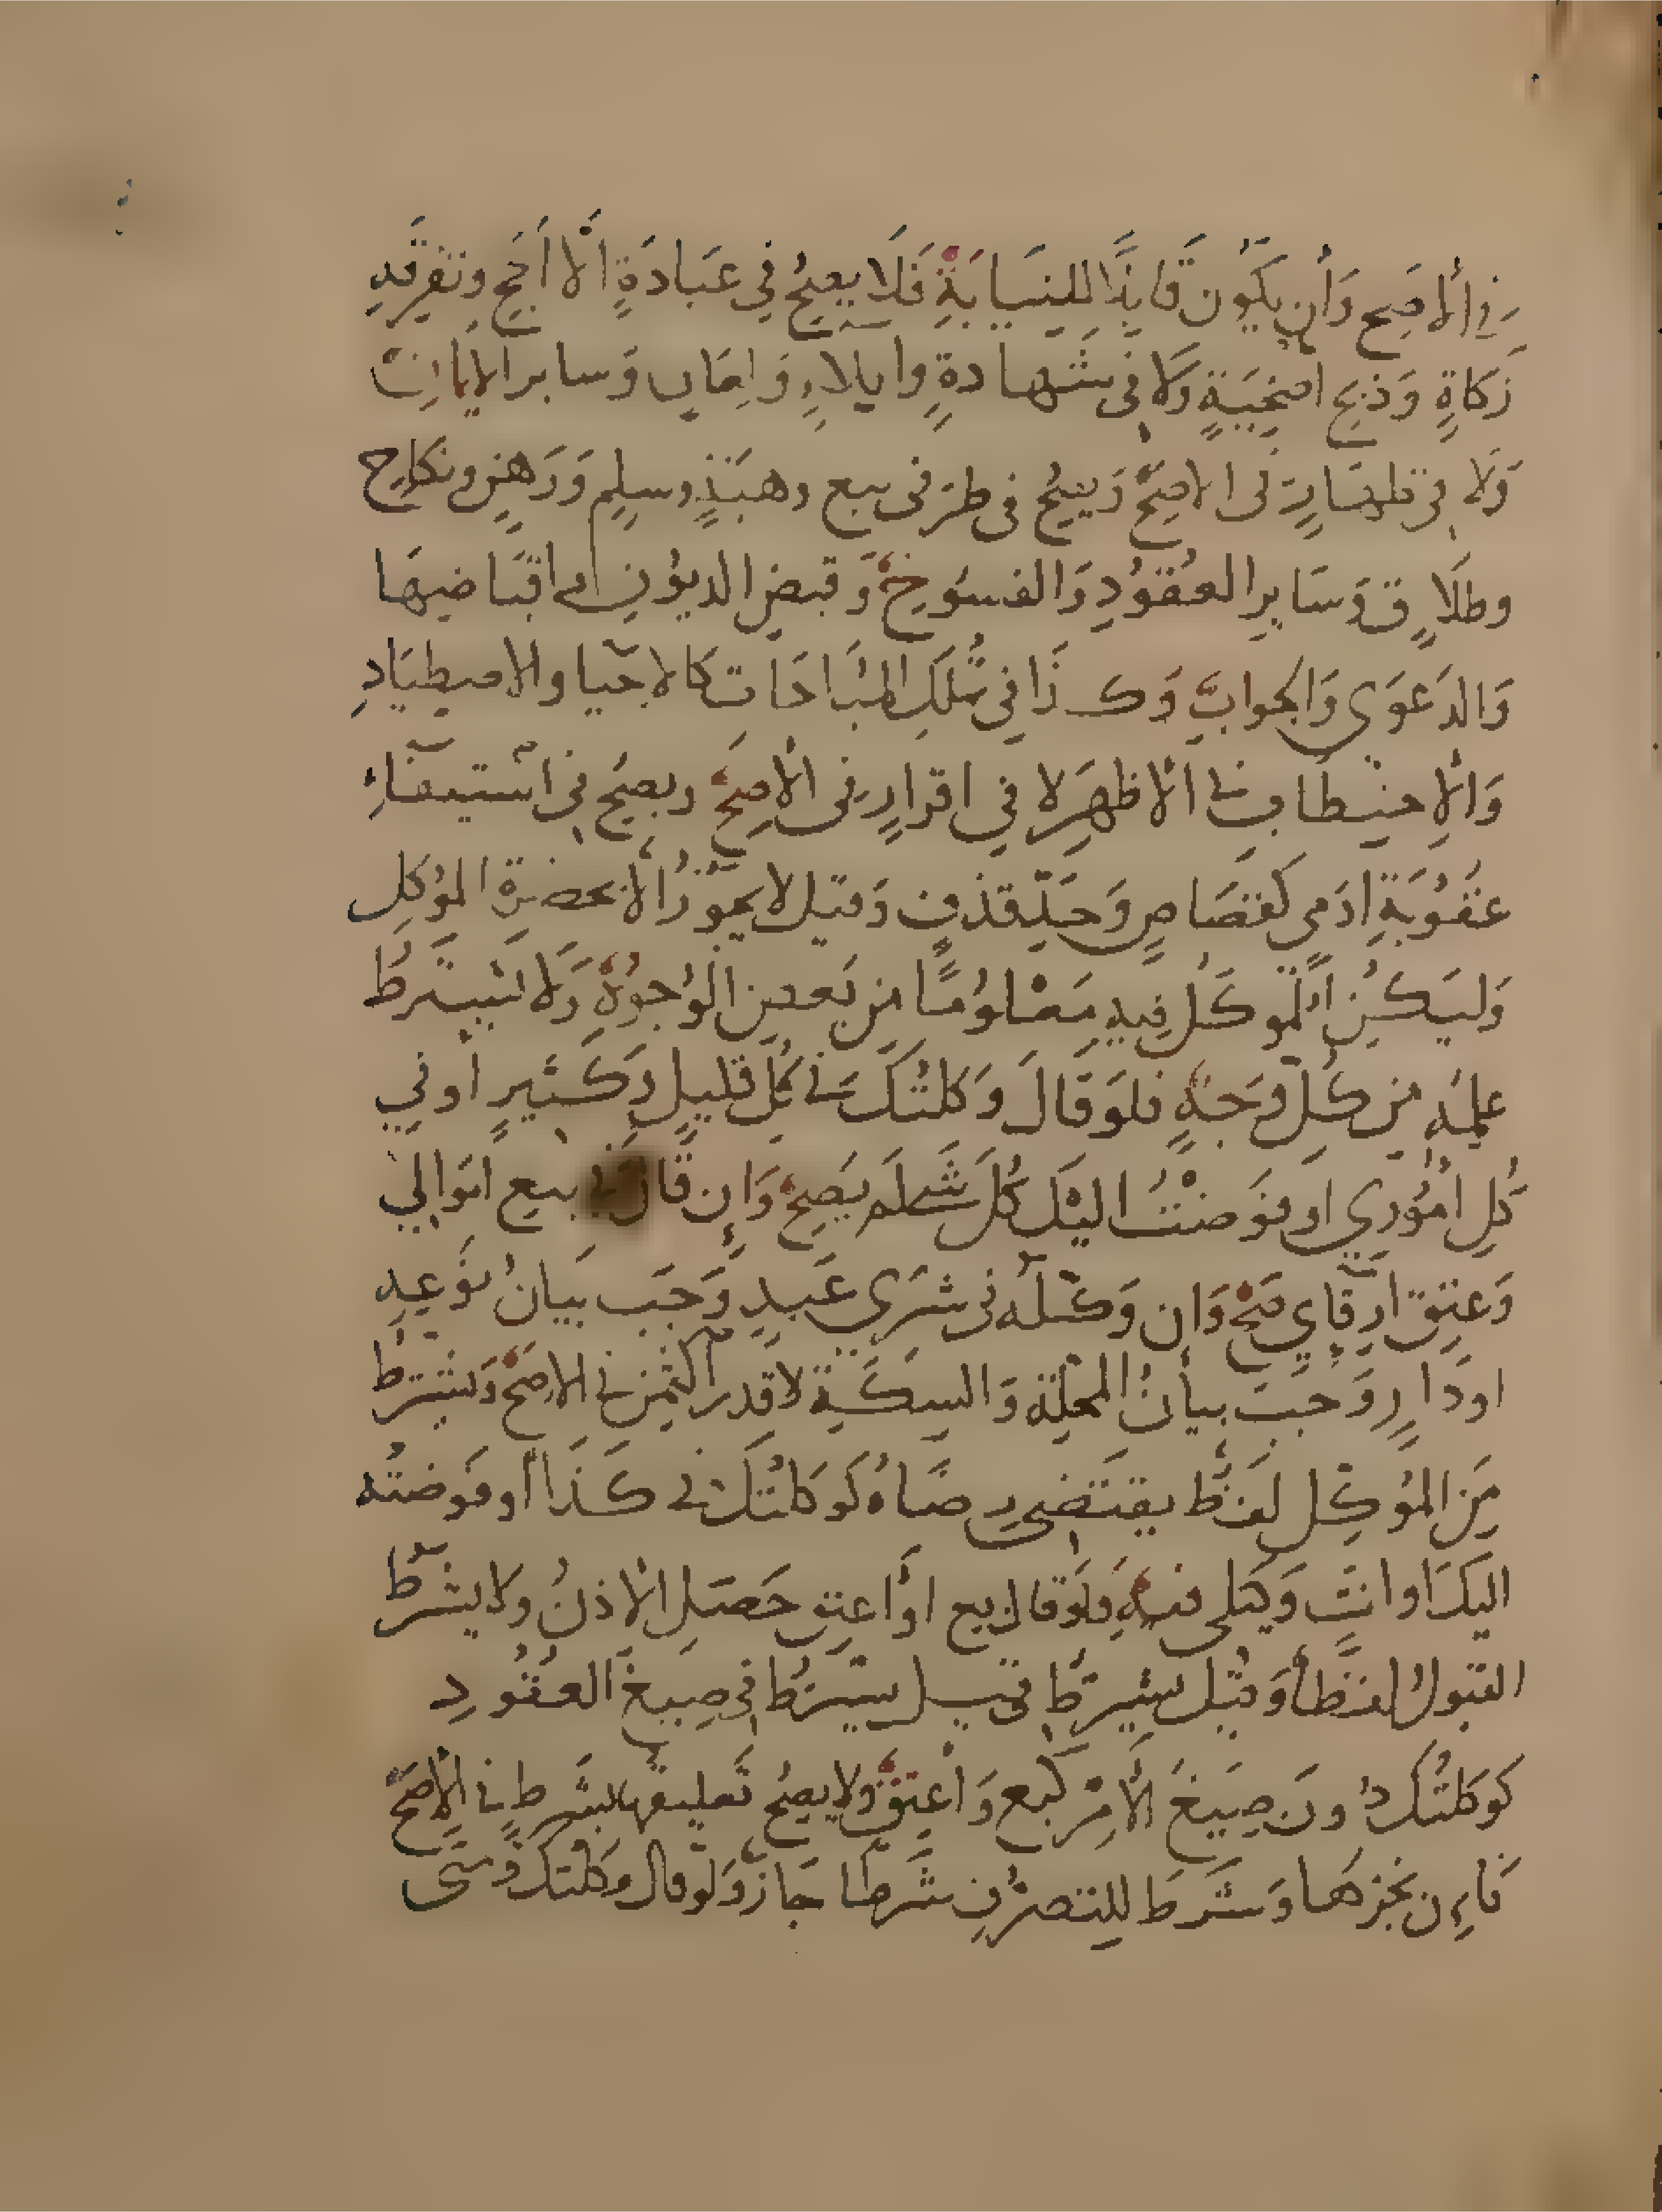 في الأصح وَأن يكَوُن قَابِلًا للنيَابَةِ فَلَا يصِحُ فِي عبَادَةٍ الّا الحَج وتفرقَةِ
زَكاةٍ وَذبح اضحِيَةٍ وَلا في شَهادةٍ وايلاءٍ وَلعَانٍ وَساير الايمانِ
وَلَا في ظهَارٍ في الاصَحِّ وَيصِحُ في طرفى بيع وهبَةٍ وسلمٍ وَرَهنٍ ونكاحٍ
وطلَاقٍ وَسَايرِ العُقوُدِ وَالفسوُخ وَقبضِ الديوُن واقبَاضِهَا
وَالدَعوَى وَالجوابِ وَكذَا في تملّكِ المبَاحَات كَالاحيَا والاصطيَادِ
وَالاحتِطاب في الأظهَرِ لا في اقرارٍ في الأصَحِّ ويصِحُ في استيفَاءِ
عقُوُبَةِ ادَمي كَقصَاصٍ وَحَدِّ قذفٍ وَقيل لا يجوُزُ الّا بحضرة الموُكل
وَليَكُنِ الموَكَّل فيهِ مَعْلوُمًا مِن بَعض الوُجوُهِ وَلا يشترَطُ
علمُهُ من كلّ وَجهٍ فلوَ قالَ وَكلتُكَ في كُلّ قليلٍ وَكثيرٍ او في
كُلِ امُوُري او فوَضْتُ اليْك كُلَ شَي لم يَصِحّ وَإن قَالَ في بيع اموَالي
وَعتق ارقّايِ صَحَّ وَان وَكلهُ في شرَى عَبدٍ وَجَب بيَانُ نوَعِهِ
اودَارٍ وَجَبَ بيَانُ المحلّة وَالسِكَّةِ لا قدر الثمن في الاصَحّ وَيشترَط
مِنَ الموُكِل لفَظٌ يقتَضي رِضَاهُ كَوَكلتُكَ في كَذَا أو فوَضتُه
اليكَ او انتَ وَكيلى فيهِ فلَو قال بع او أعتِق حَصَل الأذنُ ولا يشترَط
القبول لفظًا وَقيل يشترطُ وقيل يشترطُ في صِيَغ العقُودِ
كوَكلتُكَ دوُنَ صِيَغَ الأمرْ كَبع وَأعْتِق وَلا يصحُ تَعليقُها بشَرطٍ في الأصَحّ
فَاءِن نجزهَا وَشَرَط للتصَرُف شَرطًا جَازَ وَلوَ قال وَكلتك وَمتَى